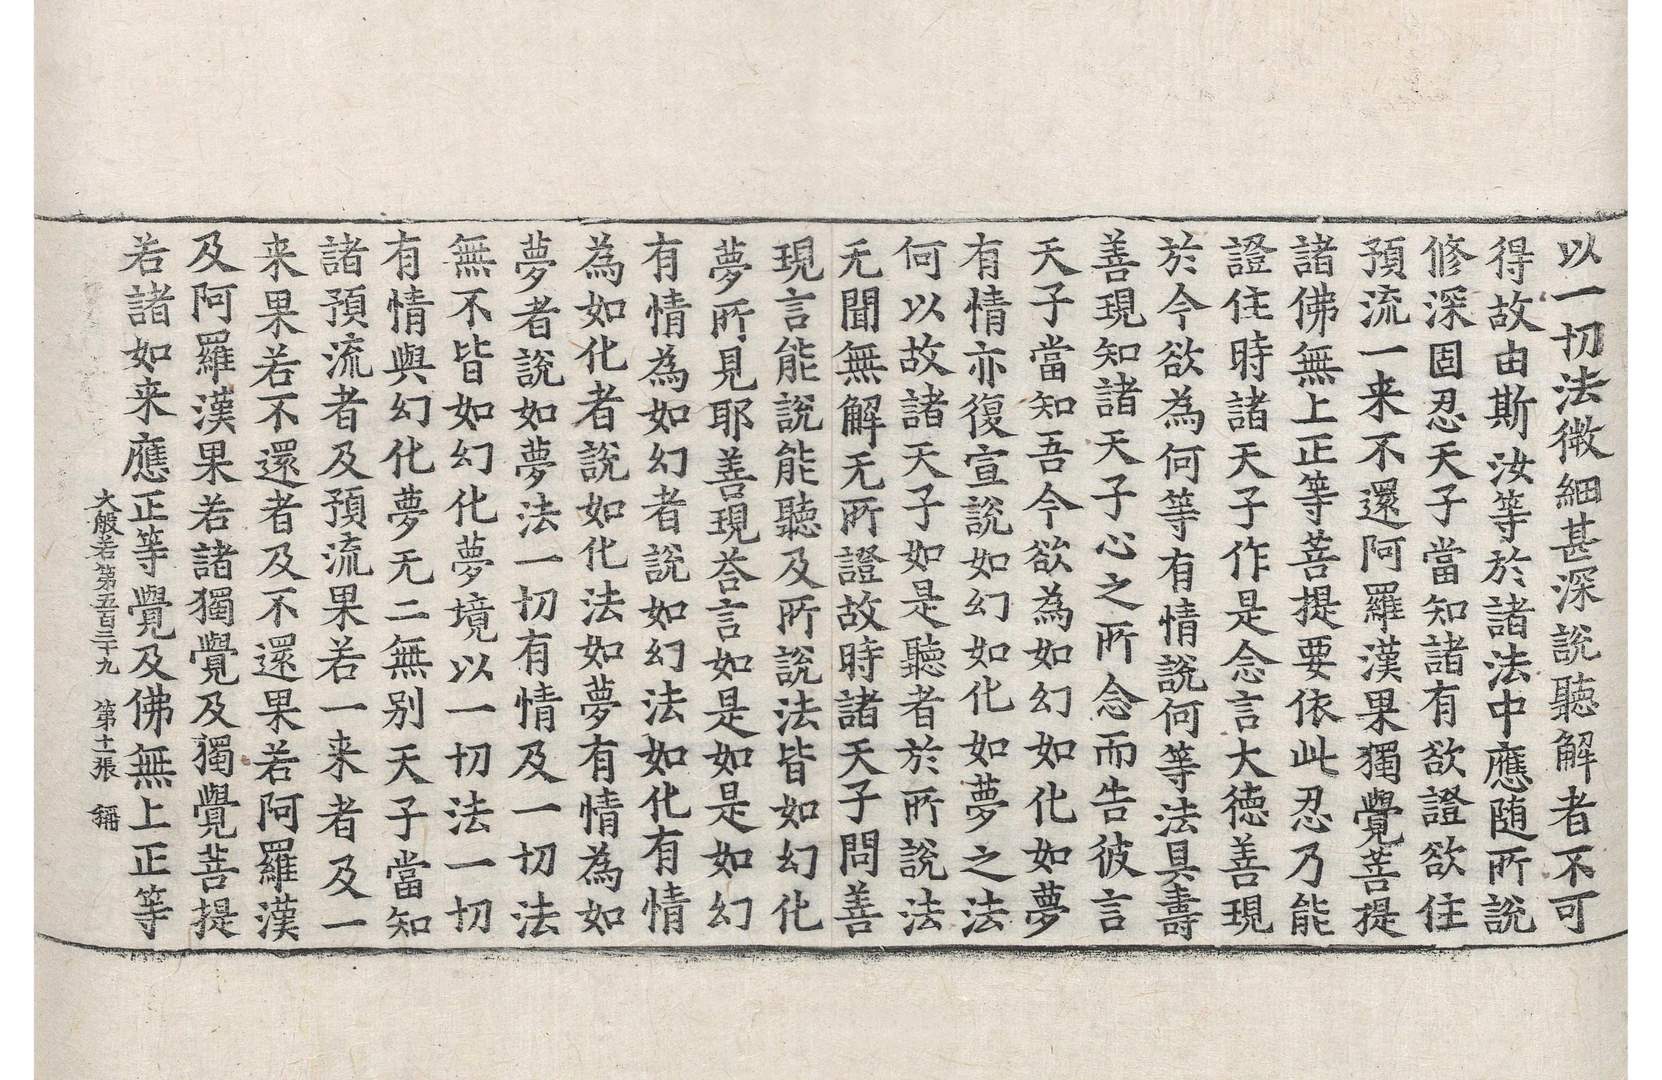 以一切法微細甚深說聽解者不可
得故由斯汝等於諸法中應随所說
修深固忍天子當知諸有欲證欲住
預流一来不還阿羅漢果獨覺菩提
諸佛無上正等菩提要依此忍乃能
證住時諸天子作是念言大德善現
於今欲為何等有情說何等法具壽
善現知諸天子心之所念而告彼言
天子當知吾今欲為如幻如化如夢
有情亦復宣說如幻如化如夢之法
何以故諸天子如是聽者於所說法
无聞無解无所證故時諸天子問善
現言能說能聽及所說法皆如幻化
夢所見耶善現荅言如是如是如幻
有情為如幻者說如幻法如化有情
為如化者說如化法如夢有情為如
夢者說如夢法一切有情及一切法
無不皆如幻化夢境以一切法一切
有情與幻化夢无二無別天子當知
諸預流者及預流果若一来者及一
来果若不還者及不還果若阿羅漢
及阿羅漢果若諸獨覺及獨覺菩提
若諸如来應正等覺及佛無上正等
大般若第五百三十九　第十一張　稱